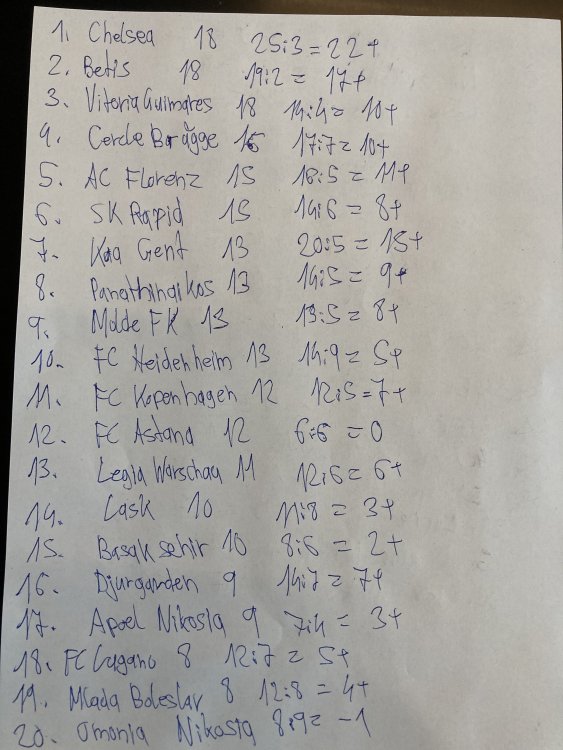 1. Chelsea 18 25:3 = 22+
2. Betis 18 19:2 = 17+
3. Vitoria Guimares 18 14:4 = 10+
4. Cercle Brügge 15 17:7 = 10+
5. AC Florenz 15 16:5 = 11+
6. SK Rapid 15 14:6 = 8+
7. Kaa Gent 13 20:5 = 15+
8. Panathinaikos 13 14:5 = 9+
9. Molde FK 13 13:5 = 8+
10. FC Heidenheim 13 14:9 = 5+
11. FC Kopenhagen 12 12:5 = 7+
12. FC Astana 12 6:6 = 0
13. Legia Warschau 11 12:6 = 6+
14. Lask 10 11:8 = 3+
15. Basak sehir 10 8:6 = 2+
16. Djurgarden 9 14:7 = 7+
17. Apoel Nikosia 9 7:4 = 3+
18. FC Lugano 8 12:7 = 5+
19. Mlada Boleslav 8 12:8 = 4+
20. Omonia Nikosia 8:9 = -1